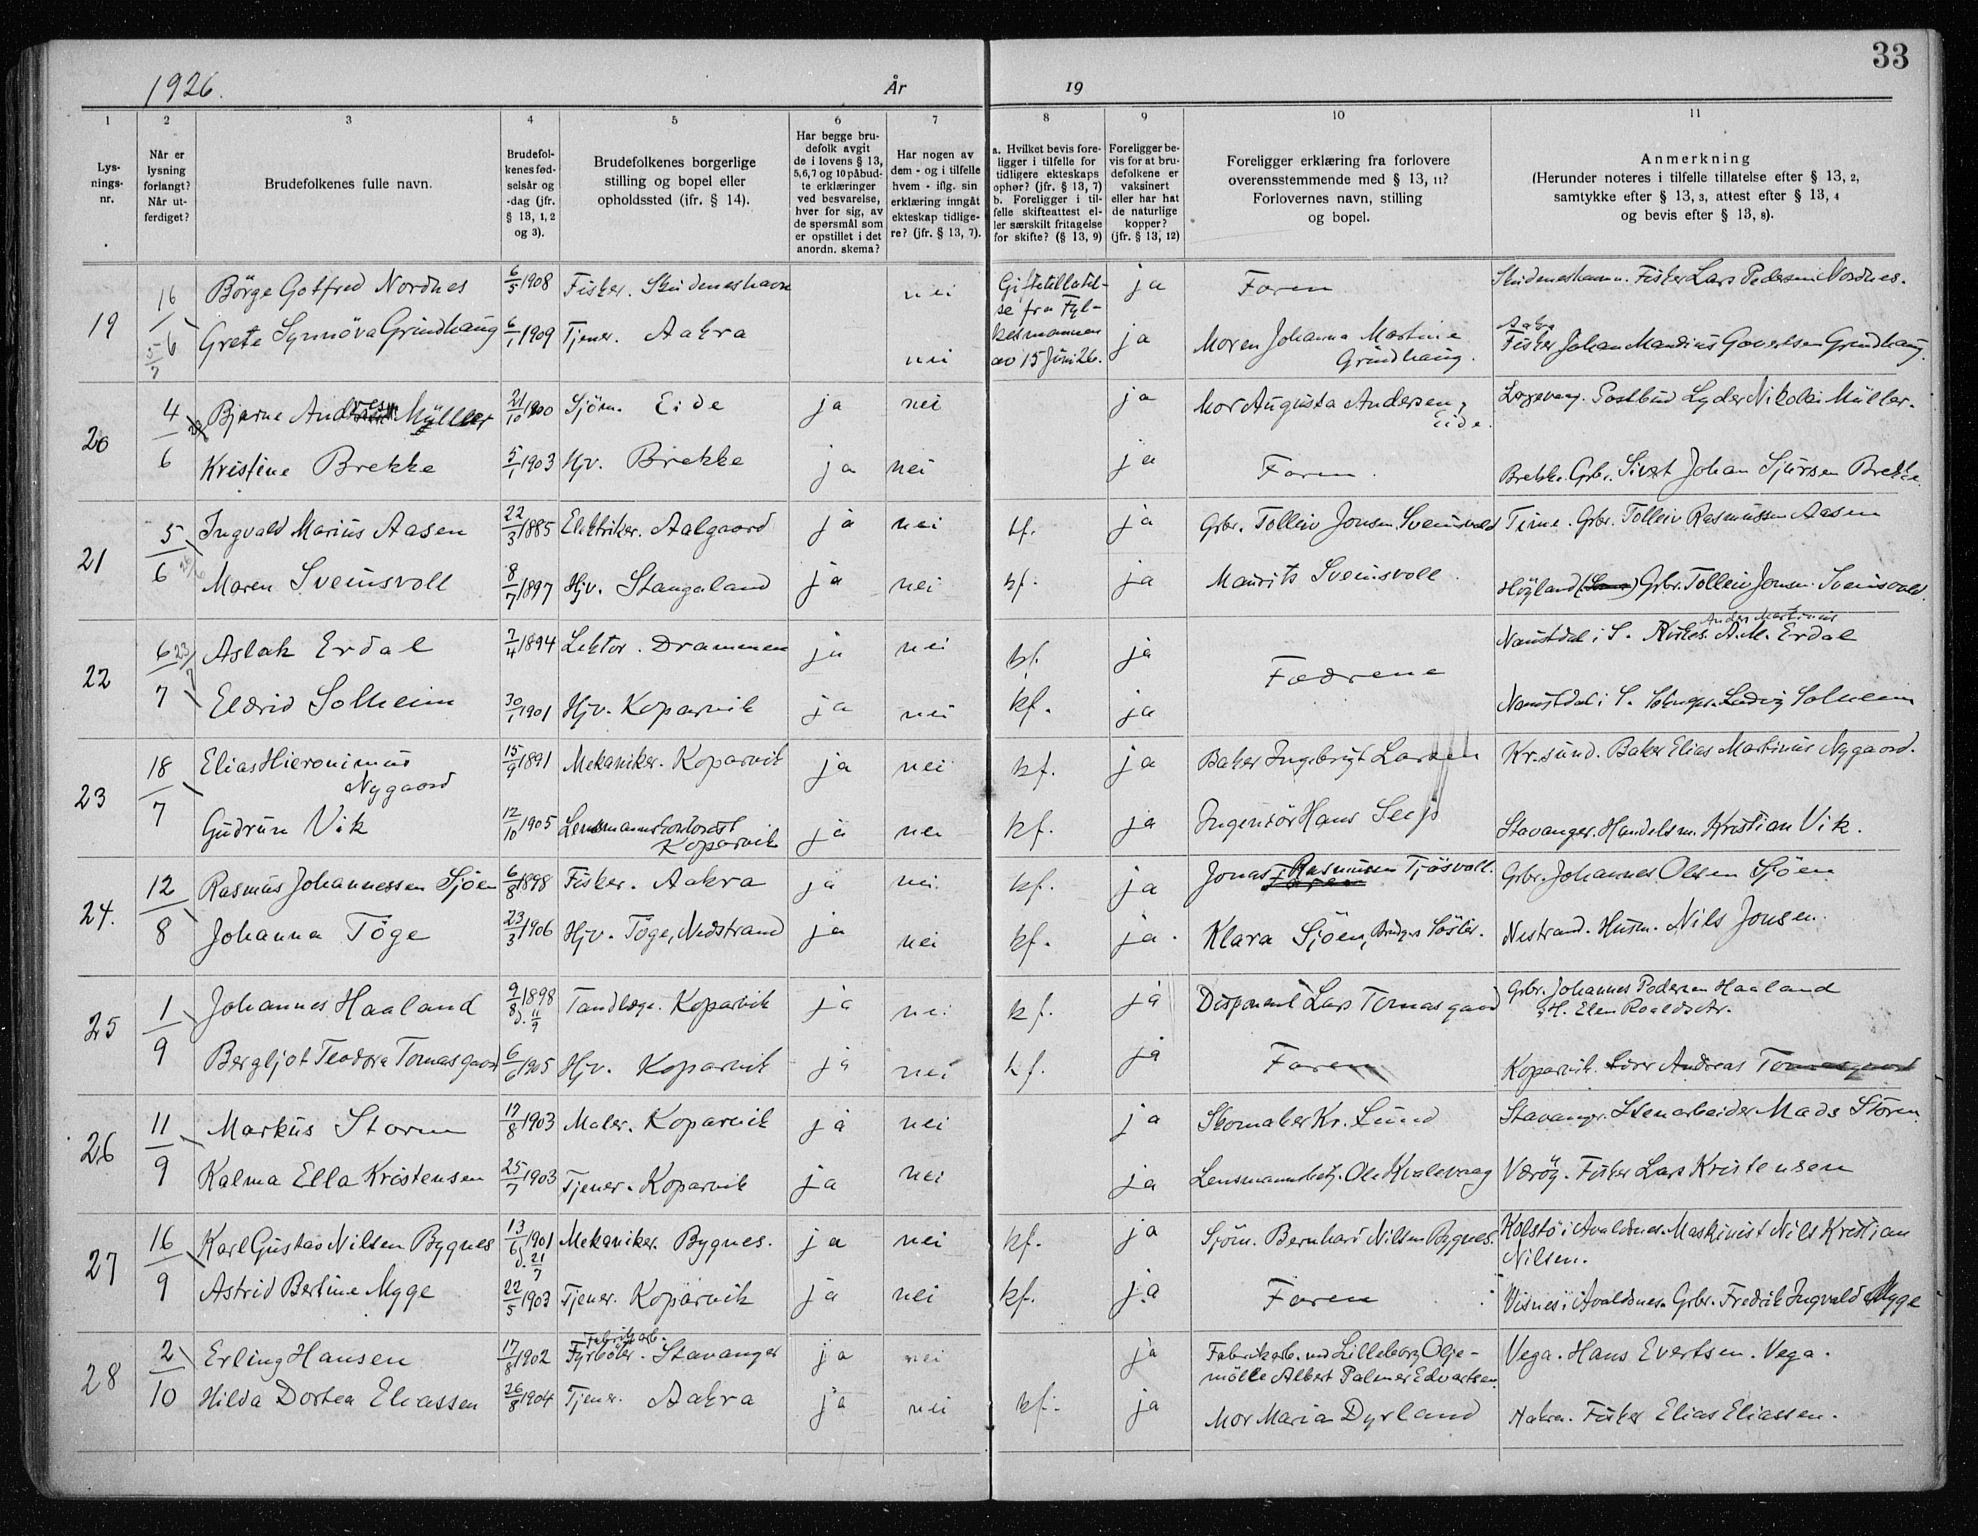 33
1926. År 19
1 2 3 4 5 6 7 8 9 10 11
Lys-
nings-
nr.
Når er
lysning
forlangt?
Når ut-
ferdiget?
Brudefolkenes fulle navn.
Brudefol-
kenes fød-
selsår og
-dag (jfr.
§ 13, 1, 2
og 3).
Brudefolkenes borgerlige
stilling og bopel eller
opholdssted (jfr. § 14).
Har begge bru-
defolk avgit
de i lovens § 13,
5, 6, 7 og 10 påbud-
te erklæringer
ved besvarelse,
hver for sig, av
de spørsmål som
er opstillet i det
anordn. skema?
Har nogen av
dem - og i tilfelle
hvem - iflg. sin
erklæring inngåt
ekteskap tidlige-
re? (jfr. § 13, 7).
a. Hvilket bevis fore-
ligger i tilfelle for
tidligere ekteskaps
ophør? (jfr. § 13, 7)
b. Foreligger i til-
felle skifteattest el-
ler særskilt fritagelse
for skifte? (§ 13, 9)
Foreligger be-
vis for at bru-
defolkene er
vaksinert
eller har hat
de naturlige
kopper?
(jfr. § 13, 12)
Foreligger erklæring fra forlovere
overensstemmende med § 13, 11?
Forlovernes navn, stilling
og bopel.
Anmerkning
(Herunder noteres i tilfelle tillatelse efter § 13, 2,
samtykke efter § 13, 3, attest efter § 13, 4
og bevis efter § 13, 8).
19 16/6 5/7 Börge Gotfred Nordnes 6/5 1908 Fisker. Skudeneshavn nei Giftetillatel-
se fra Fyl-
kesmannen
av 15 Juni 26. ja Faren Skudeneshavn. Fisker Lars Pedersen Nordnes.
Grete Synnöva Grindhaug 6/1 1909 Tjener. Aakra nei ja Moren Johanna Martine
Grindhaug. Aakra
Fisker Johan Mandius Govertsen Grindhaug.
20 4/6 Bjarne Andersen Müller 21/10 1900 Sjöm. Eide ja nei ja Mor Augusta Andersen,
Eide. Postbud Lyder Nikolai Müller.
Kristine Brekke 5/1 1903 Hjv. Brekke ja nei ja Faren. Brekke. Grbr. Sivert Johan Sjursen Brekke.
21 5/6 Ingvald Marius Aasen 22/3 1885 Elektriker. Aalgaard ja nei kf. ja Grbr. Tolleiv Jonsen Sveinsvold Time. Grbr. Tolleiv Rasmussen Aasen
Maren Sveinsvoll 8/7 1897 Hjv. Stangaland ja nei kf. ja Maurits Sveinsvoll. Höyland Grbr. Tolleiv Jonsen Sveinsvold.
22 6/7 23/7 Aslak Erdal 7/4 1894 Lektor. Drammen ja nei kf. ja Fædrene Naustdal i S. A.M. Erdal
Anders Martinus
Eldrid Solheim 30/1 1901 Hjv. Kopervik ja nei kf. ja Naustdal i S. Ludvig Solheim
23 18/7 Elias Hieronimus
Nygaard 15/9 1891 Mekaniker. Kopervik ja nei kf. ja Baker Ingebrigt Larsen Kr.sund. Baker Elias Martinus Nygaard.
Gudrun Vik 12/10 1905 Lensmannskontorist
Kopervik ja nei kf. ja Ingeniör Hans Seljo Stavanger. Handelsm. Kristian Vik.
24. 12/8 Rasmus Johannessen Sjöen 6/8 1898 Fisker. Aakra ja nei. kf. ja Jonas Rasmussen Tjösvoll. Grbr. Johannes Olsen Sjöen
Johanna Töge 23/3 1906 Hjv. Töge, Nedstrand ja nei kf. ja. Klara Sjöen, Brudgs Söster. Nestrand. Husm. Nils Jonsen.
25 1/9 Johannes Haaland 9/8 1898
d. 11/9 Tandlæge. Kopervik ja nei kf. ja Disponent Lars Tomasgaard Grbr. Johannes Pedersen Haaland
& H. Elen Roaldsdtr.
Bergljot Teodora Tomasgaard 6/6 1905 Hjv. Kopervik ja nei kf. ja Faren Kopervik. Lars Andreas Tomasgaard
26 11/9 Markus Storm 17/8 1903 Maler. Kopervik ja nei ja Skomaker Kr. Lund Stavanger. Stenarbeider Mads Storm.
Kalma Ella Kristensen 25/7 1903 Tjener. Kopervik ja nei ja Lensmannsbetj. Ole Kvalevaag Værøy. Fisker Lars Kristensen
27 16/9 Karl Gustav Nilsen Bygnes 13/6 1901
d. 21/7 Mekaniker. Bygnes. ja nei kf. ja Sjöm. Bernhard Nilsen Bygnes. Kolstö i Avaldsnes. Maskinist Nils Kristian
Nilsen.
Astrid Bertine Mygge 22/5 1903 Tjener. Kopervik ja nei kf. ja Faren Visnes i Avaldsnes. Grbr. Fredrik Ingvald Mygge
28 2/10 Erling Hansen 17/8 1902 Fabrikarb.
Fyrböter. Stavanger ja nei ja Fabrikarb. ved Lilleborg Olje-
mölle Albert Palmer Edvartsen Vega. Hans Evertsen. Vega.
Hilda Dortea Eliassen 26/8 1904 Tjener. Aakra ja nei kf. ja Mor Maria Dyrland Aakra. Fisker Elias Eliassen.